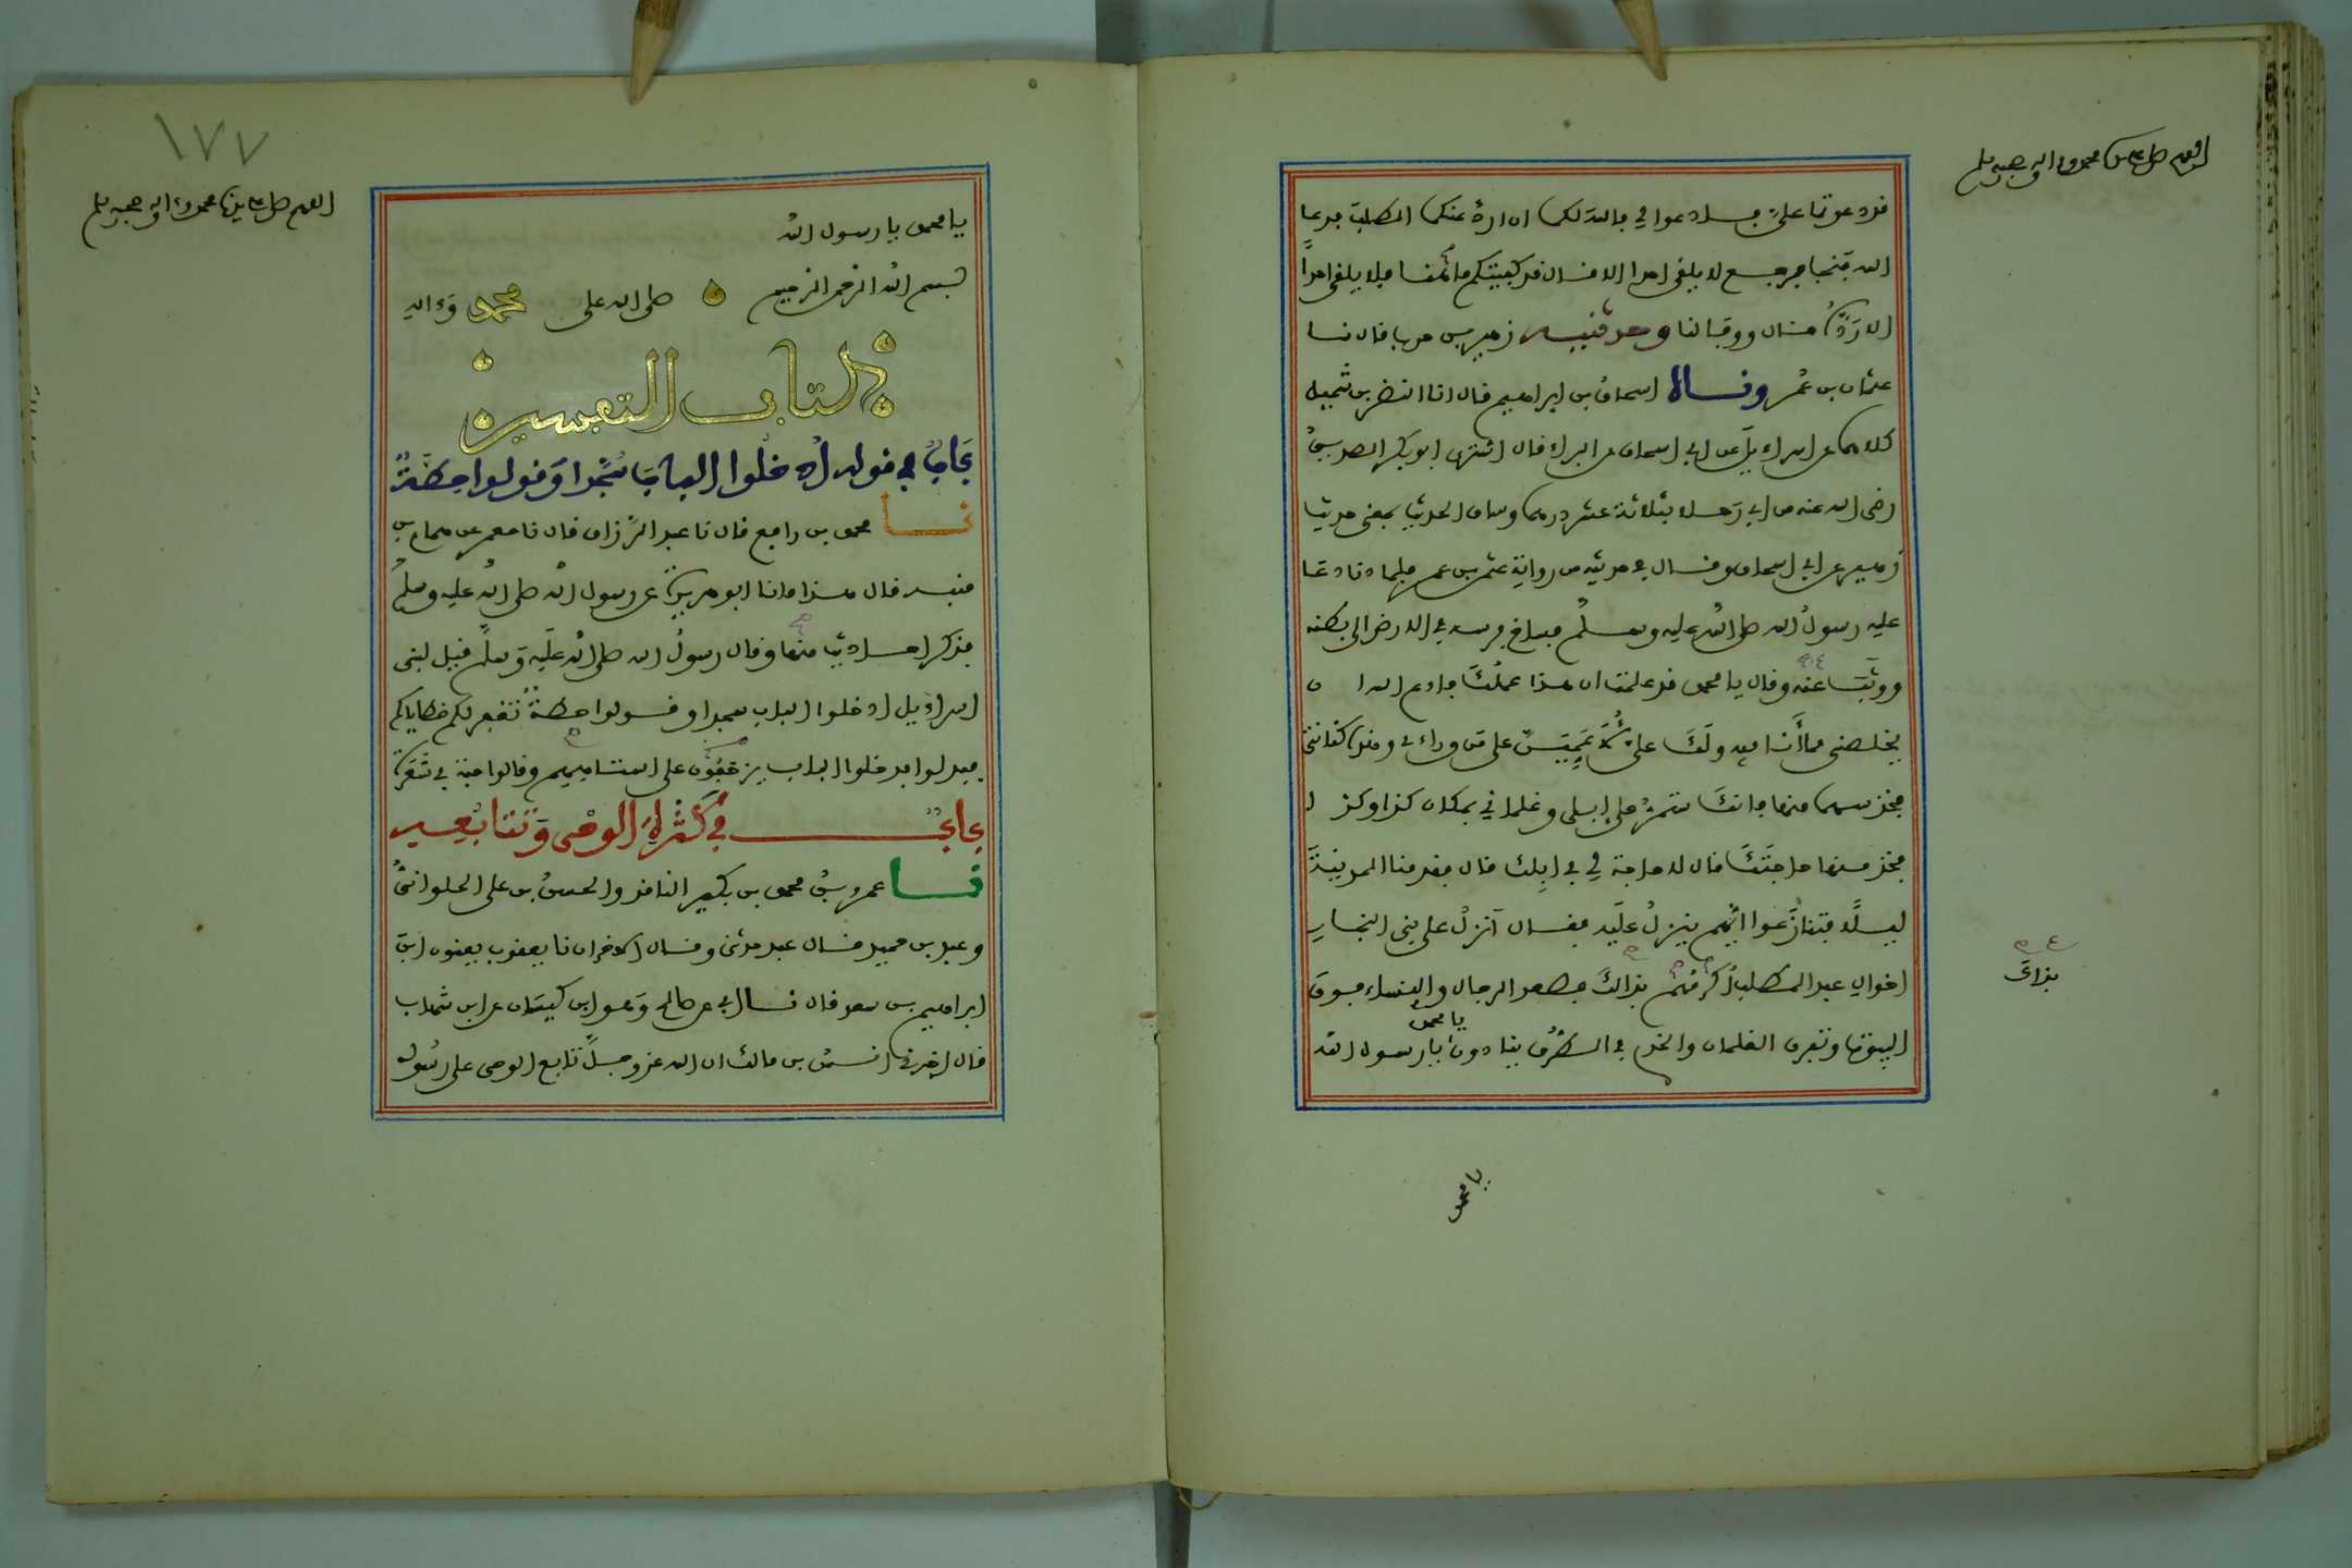 اللهم صل على سيدنا محمد وءاله وصحبه وسلم
قد دعوتما علي فادعوا لي فالله لكما ان ارد عنكما الطلب فدعا
الله فنجا فرجع لا يلقى احدا الا قال قد كفيتكم ما هنا فلا يلقى احدا
الا رده قال ووفى لنا وحدثنيه زهير بن حرب قال نا
عثمان بن عمر ونا اسحاق بن ابراهيم قال انا النضر بن شميل
كلاهما عن اسراءيل عن ابي اسحاق عن البراء قال اشترى ابو بكر الصديق
رضي الله عنه من ابي رحلا بثلاثة عشر درهما وساق الحديث بمعنى حديث
زهير عن ابي اسحاق وقال في حديثه من رواية عثمن بن عمر فلما دنا دعا
عليه رسول الله صلى الله عليه وسلم فساخ فرسه في الارض الى بطنه
ووثب عنه وقال يا محمد قد علمت ان هذا عملك فادع الله ان
يخلصني مما أنا فيه ولك علي لأعمين على من وراءي وهذه كنانتي
فخذ سهما منها فانك ستمر على ابلي وغلماني بمكان كذا وكذا
فخذ منها حاجتك قال لا حاجة لي في ابلك قال فقدمنا المدينة
ليلا فتنازعوا ايهم ينزل عليه فقال أنزل على بني النجار
اخوال عبد المطلب أكرمهم بذالك فصعد الرجال والنساء فوق
بذاك
البيوت وتفرق الغلمان والخدم في الطرق ينادون يا محمد يا رسول الله
يا محمد
١٧٧
اللهم صل على سيدنا محمد وءاله وصحبه وسلم
يا محمد يا رسول الله
بسم الله الرحمن الرحيم صلى الله على محمد وءاله
كتاب التفسير
باب في قوله ادخلوا الباب سجدا وقولوا حطة
نا محمد بن رافع قال نا عبد الرزاق قال نا معمر عن همام بن
منبه قال هذا ما نا ابو هريرة عن رسول الله صلى الله عليه وسلم
فذكر احاديث منها وقال رسول الله صلى الله عليه وسلم قيل لبني
اسراءيل ادخلوا الباب سجدا وقولوا حطة تغفر لكم خطاياكم
فبدلوا فدخلوا الباب يزحفون على استاههم وقالوا حبة في شعرة
باب في كثرة الوحي وتتابعه
نا عمرو بن محمد بن بكير الناقد والحسن بن علي الحلواني
وعبد بن حميد قال عبد حدثني وقال الاخران نا يعقوب يعنون ابن
ابراهيم بن سعد قال نا ابي عن صالح وهو ابن كيسان عن ابن شهاب
قال اخبرني انس بن مالك ان الله عز وجل تابع الوحي على رسول